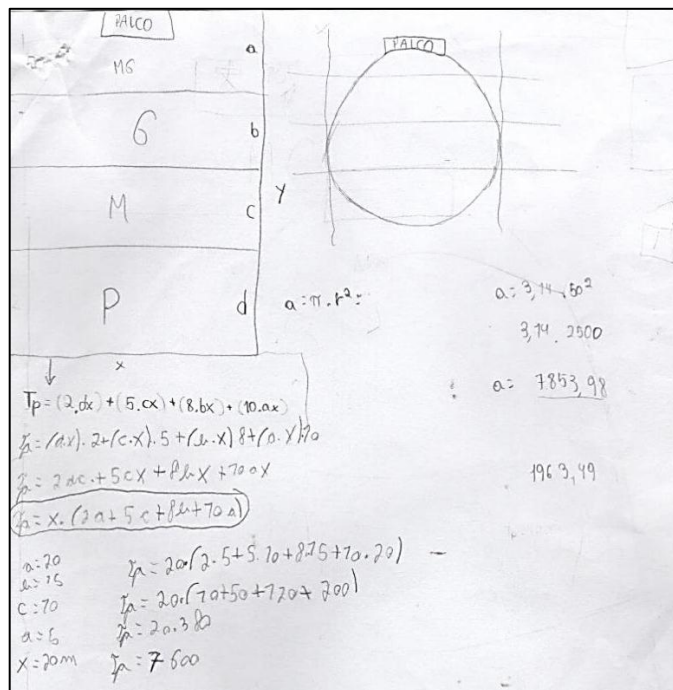 PALCO
a
MG
G
b
M
c
y
P
d
x
PALCO
a = π . r² =
a = 3,14 . 50²
3,14 . 2500
a = 7853,98
1963,49
Tp = (2.dx) + (5.cx) + (8.bx) + (10.ax)
Tp = (d.x) . 2 + (c.x) . 5 + (b.x) 8 + (a.x) 10
Tp = 2dx + 5cx + 8bx + 10ax
Tp = x . (2d + 5c + 8b + 10a)
a = 20
b = 15
c = 10
d = 5
x = 20m
Tp = 20 . (2.5 + 5.10 + 8.15 + 10.20)
Tp = 20 . (10 + 50 + 120 + 200)
Tp = 20.380
Tp = 7600